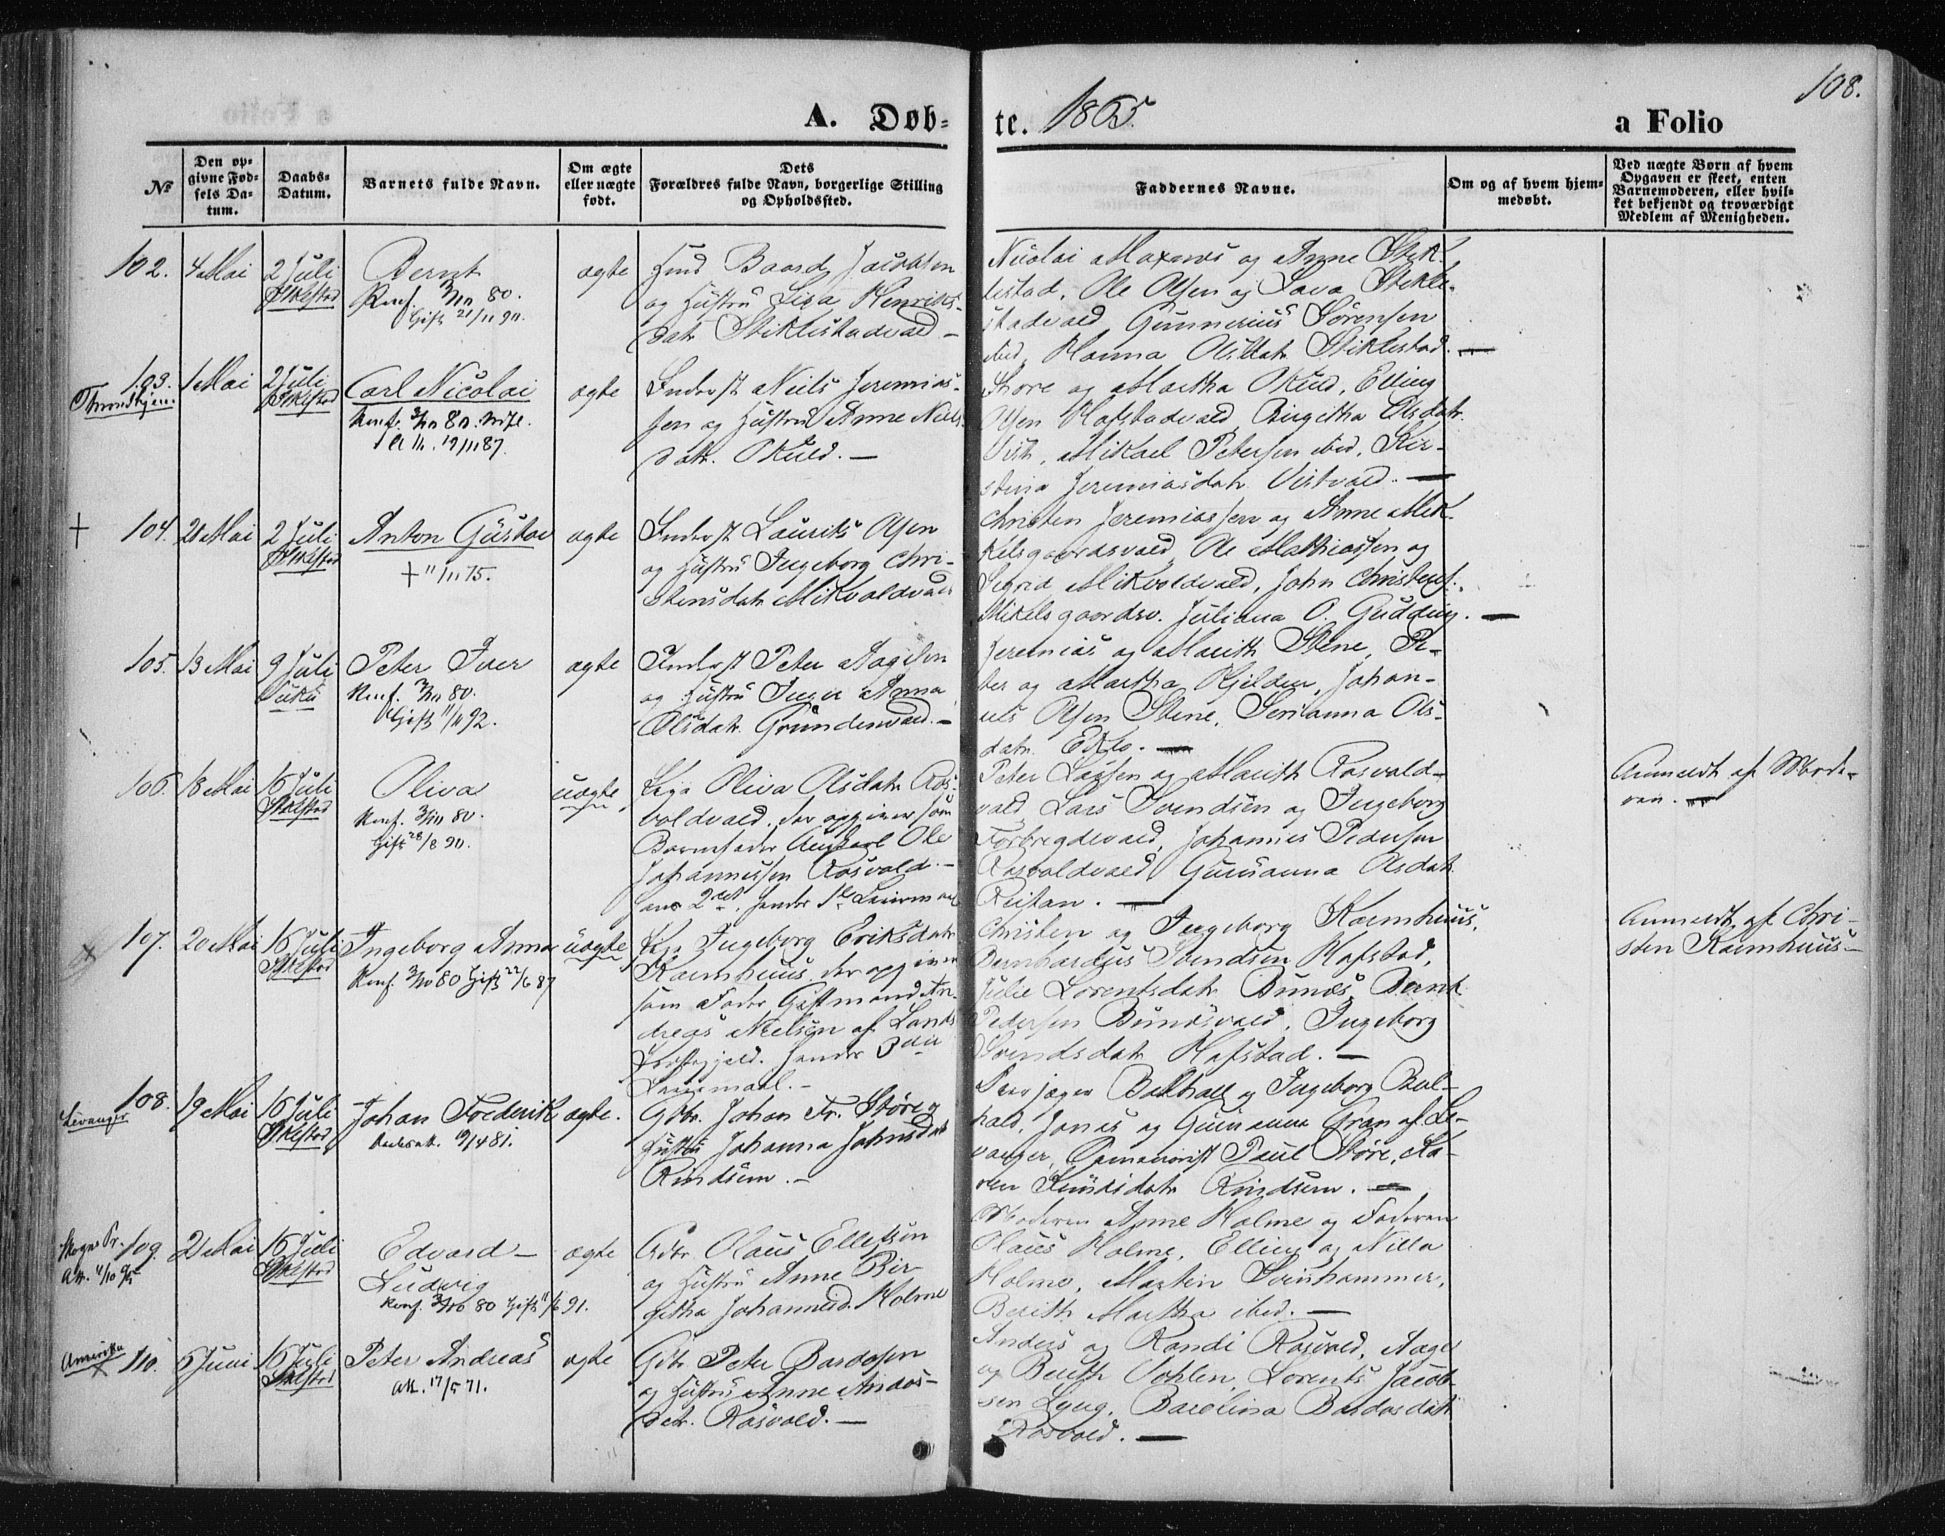 108.
A. Døb=
te. 1865.
a Folio
No
Den op=
givne Fød=
sels Da=
tum.
Daabs=
Datum.
Barnets fulde Navn.
Om ægte
eller uægte
født.
Dets
Forældres fulde Navn, borgerlige Stilling
og Opholdssted.
Faddernes Navne.
Om og af hvem hjem=
medøbt.
Ved uægte Børn af hvem
Opgaven er skeet, enten
Barnemoderen, eller hvil=
ket bekjendt og troværdigt
Medlem af Menigheden.
102. 4 Mai 2 Juli
Stklestad
Bernt
Konf. 3/10 80.
Gift 21/11 90.
ægte
Baard Jacobsen
og Hustru Lisa Henriks-
datr Stiklestadvald -
Nicolai Maxmus og Anne Stik-
lestad, Ole Olsen og Lava Stikle-
stadvald, Gunnerius Sørensen
ibid, Hanna Olsdatr Stiklestad. -
103. 1 Mai 2 Juli
Stklestad
Throndhjem.
Carl Nicolai
Konf. 3/10 80.
19/11 87.
ægte
Inderst Niels Jeremias-
sen og Hustru Anne Niels-
datr. Okuld. -
Thore og Martha Okuld, Elling
Olsen Hafstadvald, Birgitha Olsdatr.
Vist, Mikael Petersen ibid, Kir-
stina Jeremiasdatr Vistvald. -
† 104. 20 Mai 2 Juli
Stklestad
Anton Gustav
† 11/11 75.
ægte
Inderst Laurits Olsen
og Hustru Ingeborg Chri-
stensdatr Mikvoldvald
Christen Jeremiassen og Anne Mik-
kelsgaardsvald, Ole Mathiassen og
Sigrid Mikvoldvald, John Christens.
Mikelsgaardsv. Juliana O. Gudding. -
105. 13 Mai 9 Juli
Peter Iver
Konf. 3/10 80.
Gift 11/11 92.
ægte
Inderst Peter Aagesen
og Hustru Inger Anna
Olsdatr Grundenvald. -
Jeremias og Marith Stene, Pe-
ter og Martha Kjelden, Johan-
nes Olsen Stene, Serianna Ols-
datr. Eklo. -
106. 18 Mai 16 Juli
Stklestad
Oliva
Konf. 3/10 80.
Gift 28/8 90.
uægte
Pige Oliva Olsdatr Ros-
voldvald, der opgiver som
Barnefader Ungkarl Ole
Johannessen Rosvold. -
hans 2det, hendes 1te Leiermaal
Peter Larsen og Marith Rosvold-
vald, Lars Svendsen og Ingeborg
Forbregdevald, Johannes Pedersen
Rosvoldvald, Gurianna Olsdatr
Reitan. -
Anmeldt af Mode-
ren. -
107. 20 Mai 16 Juli
Stklestad
Ingeborg Anna
Konf. 3/10 80 Gift 22/6 87
uægte
Pige Ingeborg Eriksdatr
Karmhuus, der opgiver
som Fader Giftmand An-
dreas Nielsen af
Præstegjeld. hendes 3die
Leiermaal. -
Christen og Ingeborg Karmhuus,
Bernhardus Svendsen Hafstad,
Julie Lorentsdatr Bunæs, Bernt
Pedersen Bunæsvald, Ingeborg
Svendsdatr Hafstad. -
Anmeldt af Chri-
sten Karmhuus -
108. 19 Mai 16 Juli
Stklestad
Levanger
Johan Frederik
10/4 81.
ægte.
Gdbr. Johan Fr. Støre og
Hustru Johanna Johnsdatr
Rindsem. -
og Ingeborg Bal-
hald, Jonas og Gurianna Gran af Le-
vanger, Paul Støre, Ka-
ren Rindsem. -
109. 2 Mai 16 Juli
Stklestad
Skogn Pr.
Att. 4/10 95
Edvard -
Ludvig
Konf. 3/10 80 Gift 11/6 91.
ægte
Gdbr. Olaus Ellefsen
og Hustru Anne Bir-
githa Johannesd. Holme
Moderen Anne Holme og Faderen
Olaus Holme, Elling og Nilla
Holme, Martin Svinhammer,
Berith Martha ibid. -
Amerika
110. 6 Juni 16 Juli
Stklestad
Peter Andreas
Att. 17/5 71.
ægte
Gdbr Peter Bardosen
og Hustru Anne Andos-
datr. Rosvold. -
Anders og Randi Rosvold, Aage
og Berith Vohlen, Lorents Jacob-
sen Lyng, Barolina Bardosdatr
Rosvold. -